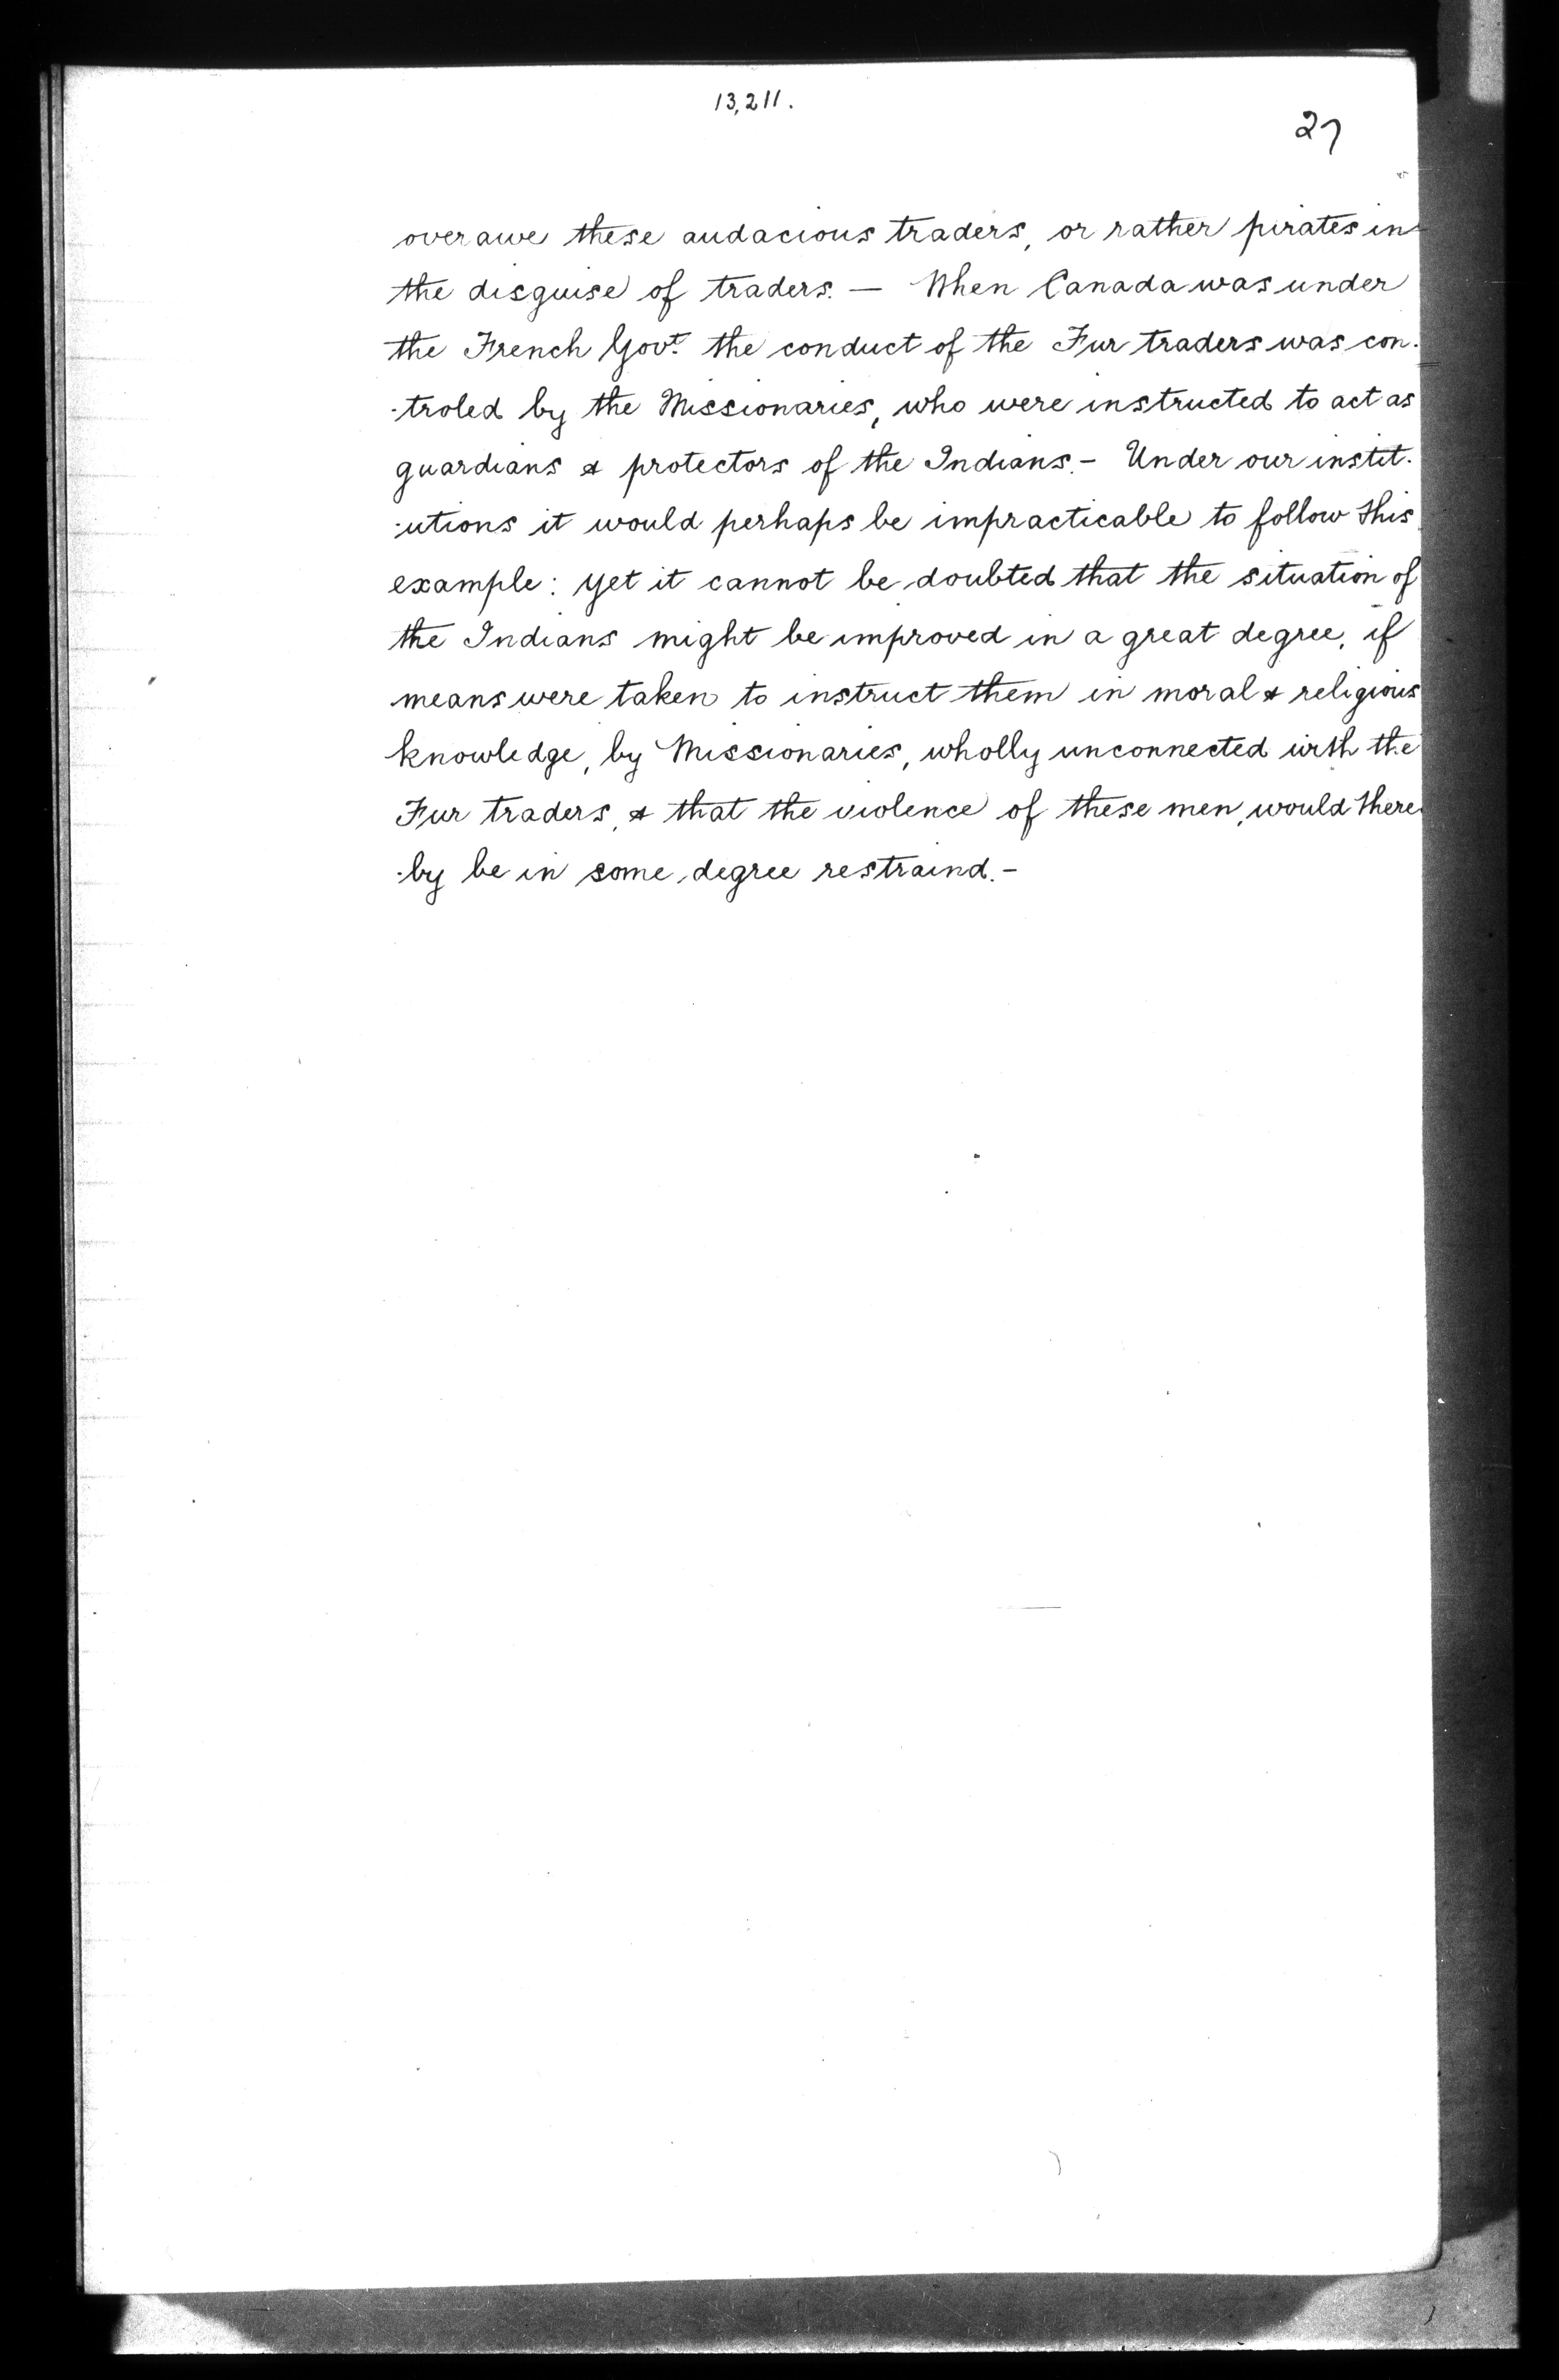 13,211.
27
overawe these audacious traders, or rather pirates in
the disguise of traders. — When Canada was under
the French Govt. the conduct of the Fur traders was con-
-troled by the Missionaries, who were instructed to act as
guardians & protectors of the Indians. - Under our instit-
-utions it would perhaps be impracticable to follow this
example: yet it cannot be doubted that the situation of
the Indians might be improved in a great degree, if
means were taken to instruct them in moral & religious
knowledge, by Missionaries, wholly unconnected with the
Fur traders, & that the violence of these men, would there-
-by be in some degree restraind. -